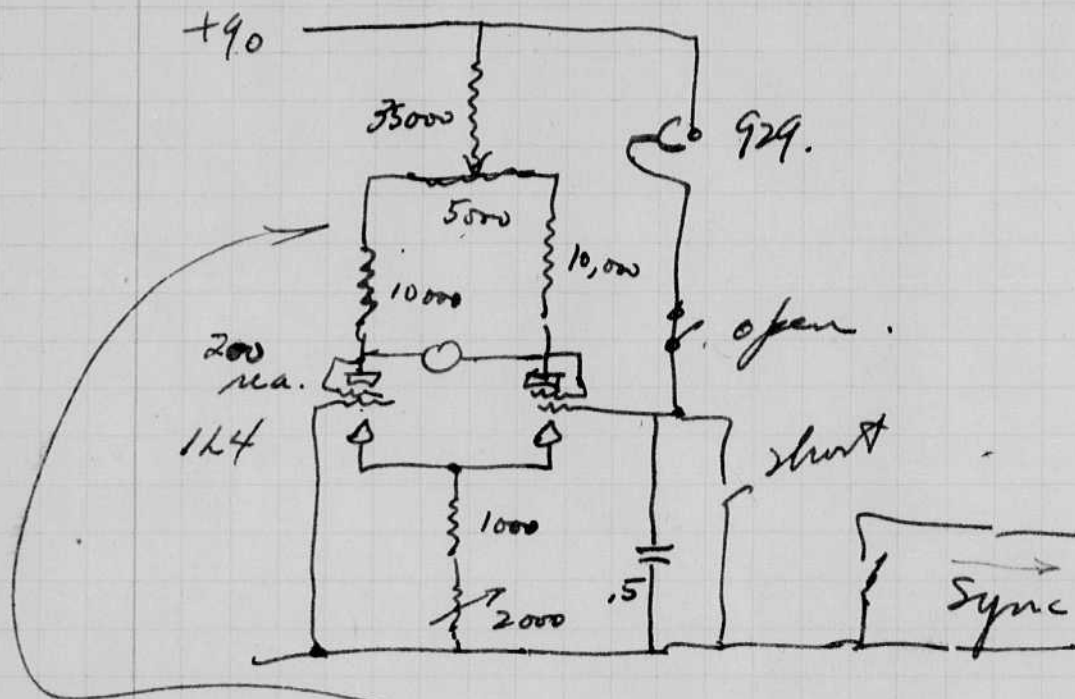 +90
35000
929.
5000
10000
10,000
open.
200
1L4
short
1000
2000
.5
Sync